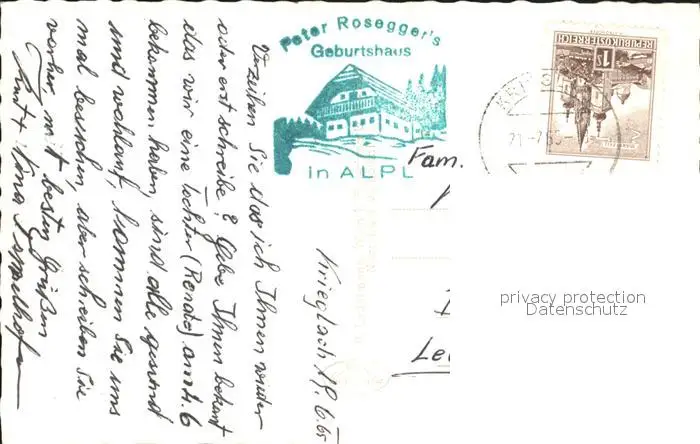 Peter Rosegger's
Geburtshaus
in ALPL
REPUBLIK ÖSTERREICH
1 S
21.-7.65
Krieglach 19.6.65
Verzeihen Sie das ich Ihnen wieder
oder erst schreibe? Gebe Ihnen bekannt
das wir eine Tochter (Renate) am 4.6
bekommen haben, sind alle gesund
und wohlauf, kommen Sie uns
mal besuchen, aber schreiben Sie
vorher, mit besten Grüßen
Fam.
Le
privacy protection
Datenschutz